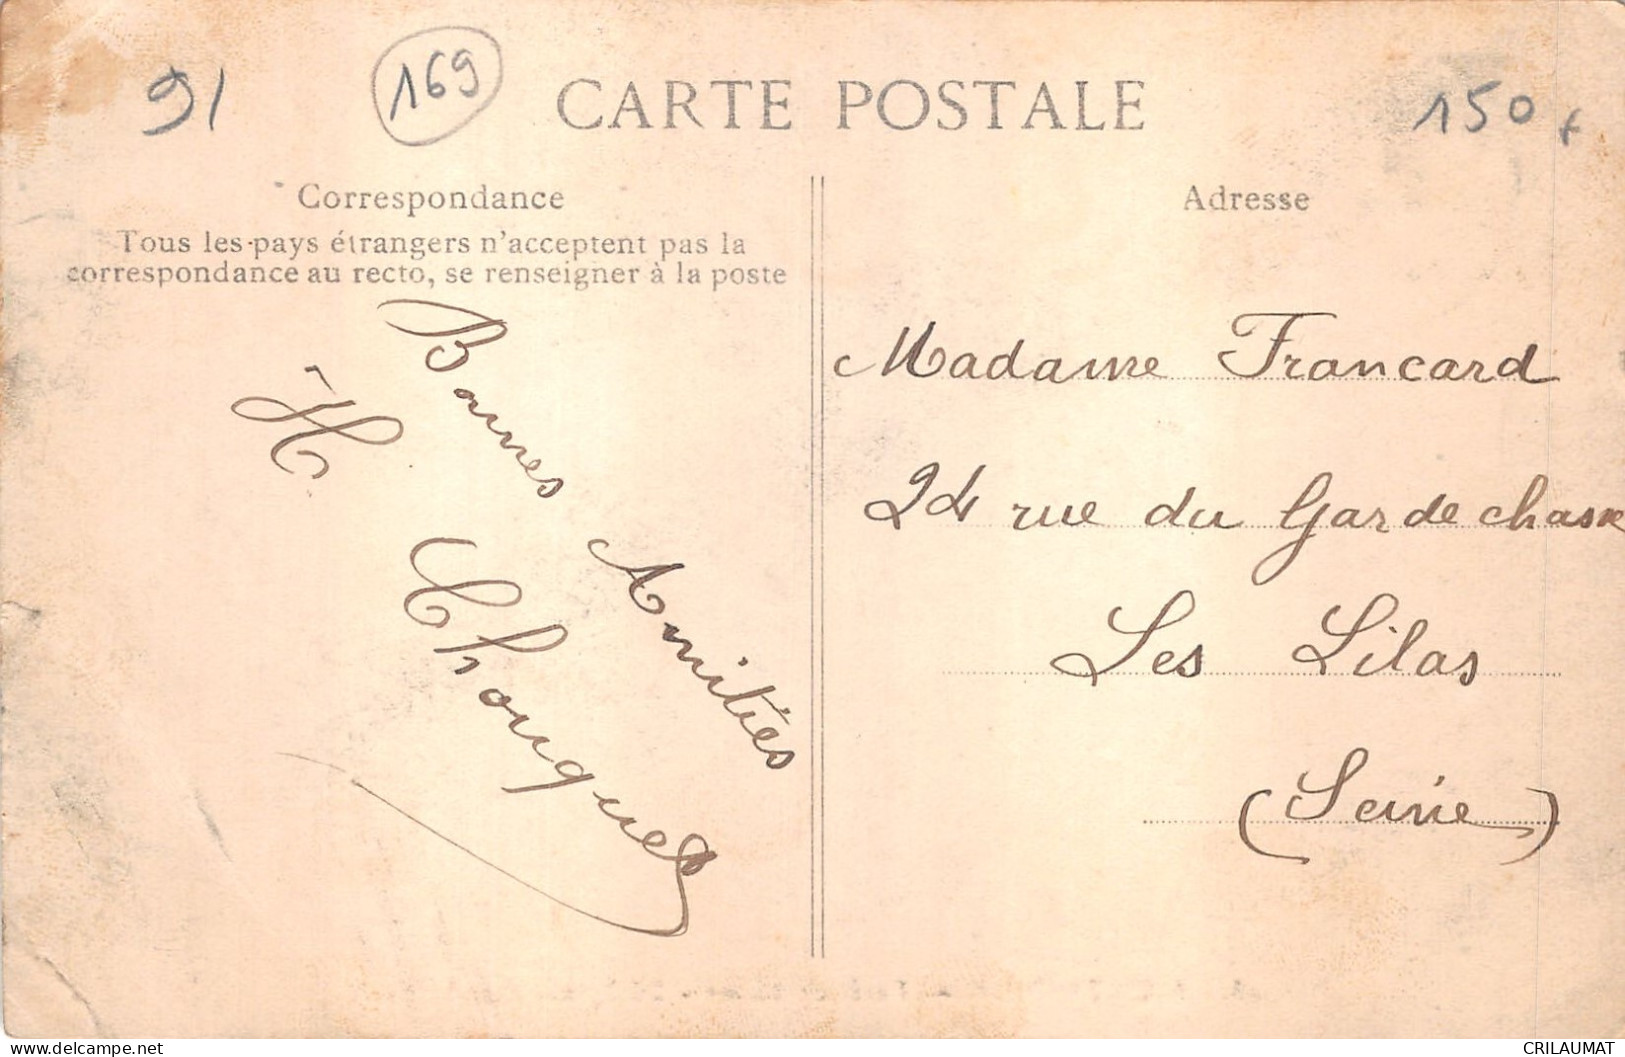 91
169
CARTE POSTALE
150 f
Correspondance
Tous les pays étrangers n'acceptent pas la
correspondance au recto, se renseigner à la poste
Bonnes Amitiés
H. Chouquet
Adresse
Madame Francard
24 rue du Garde chasse
Les Lilas
(Seine)
www.delcampe.net
CRILAUMAT